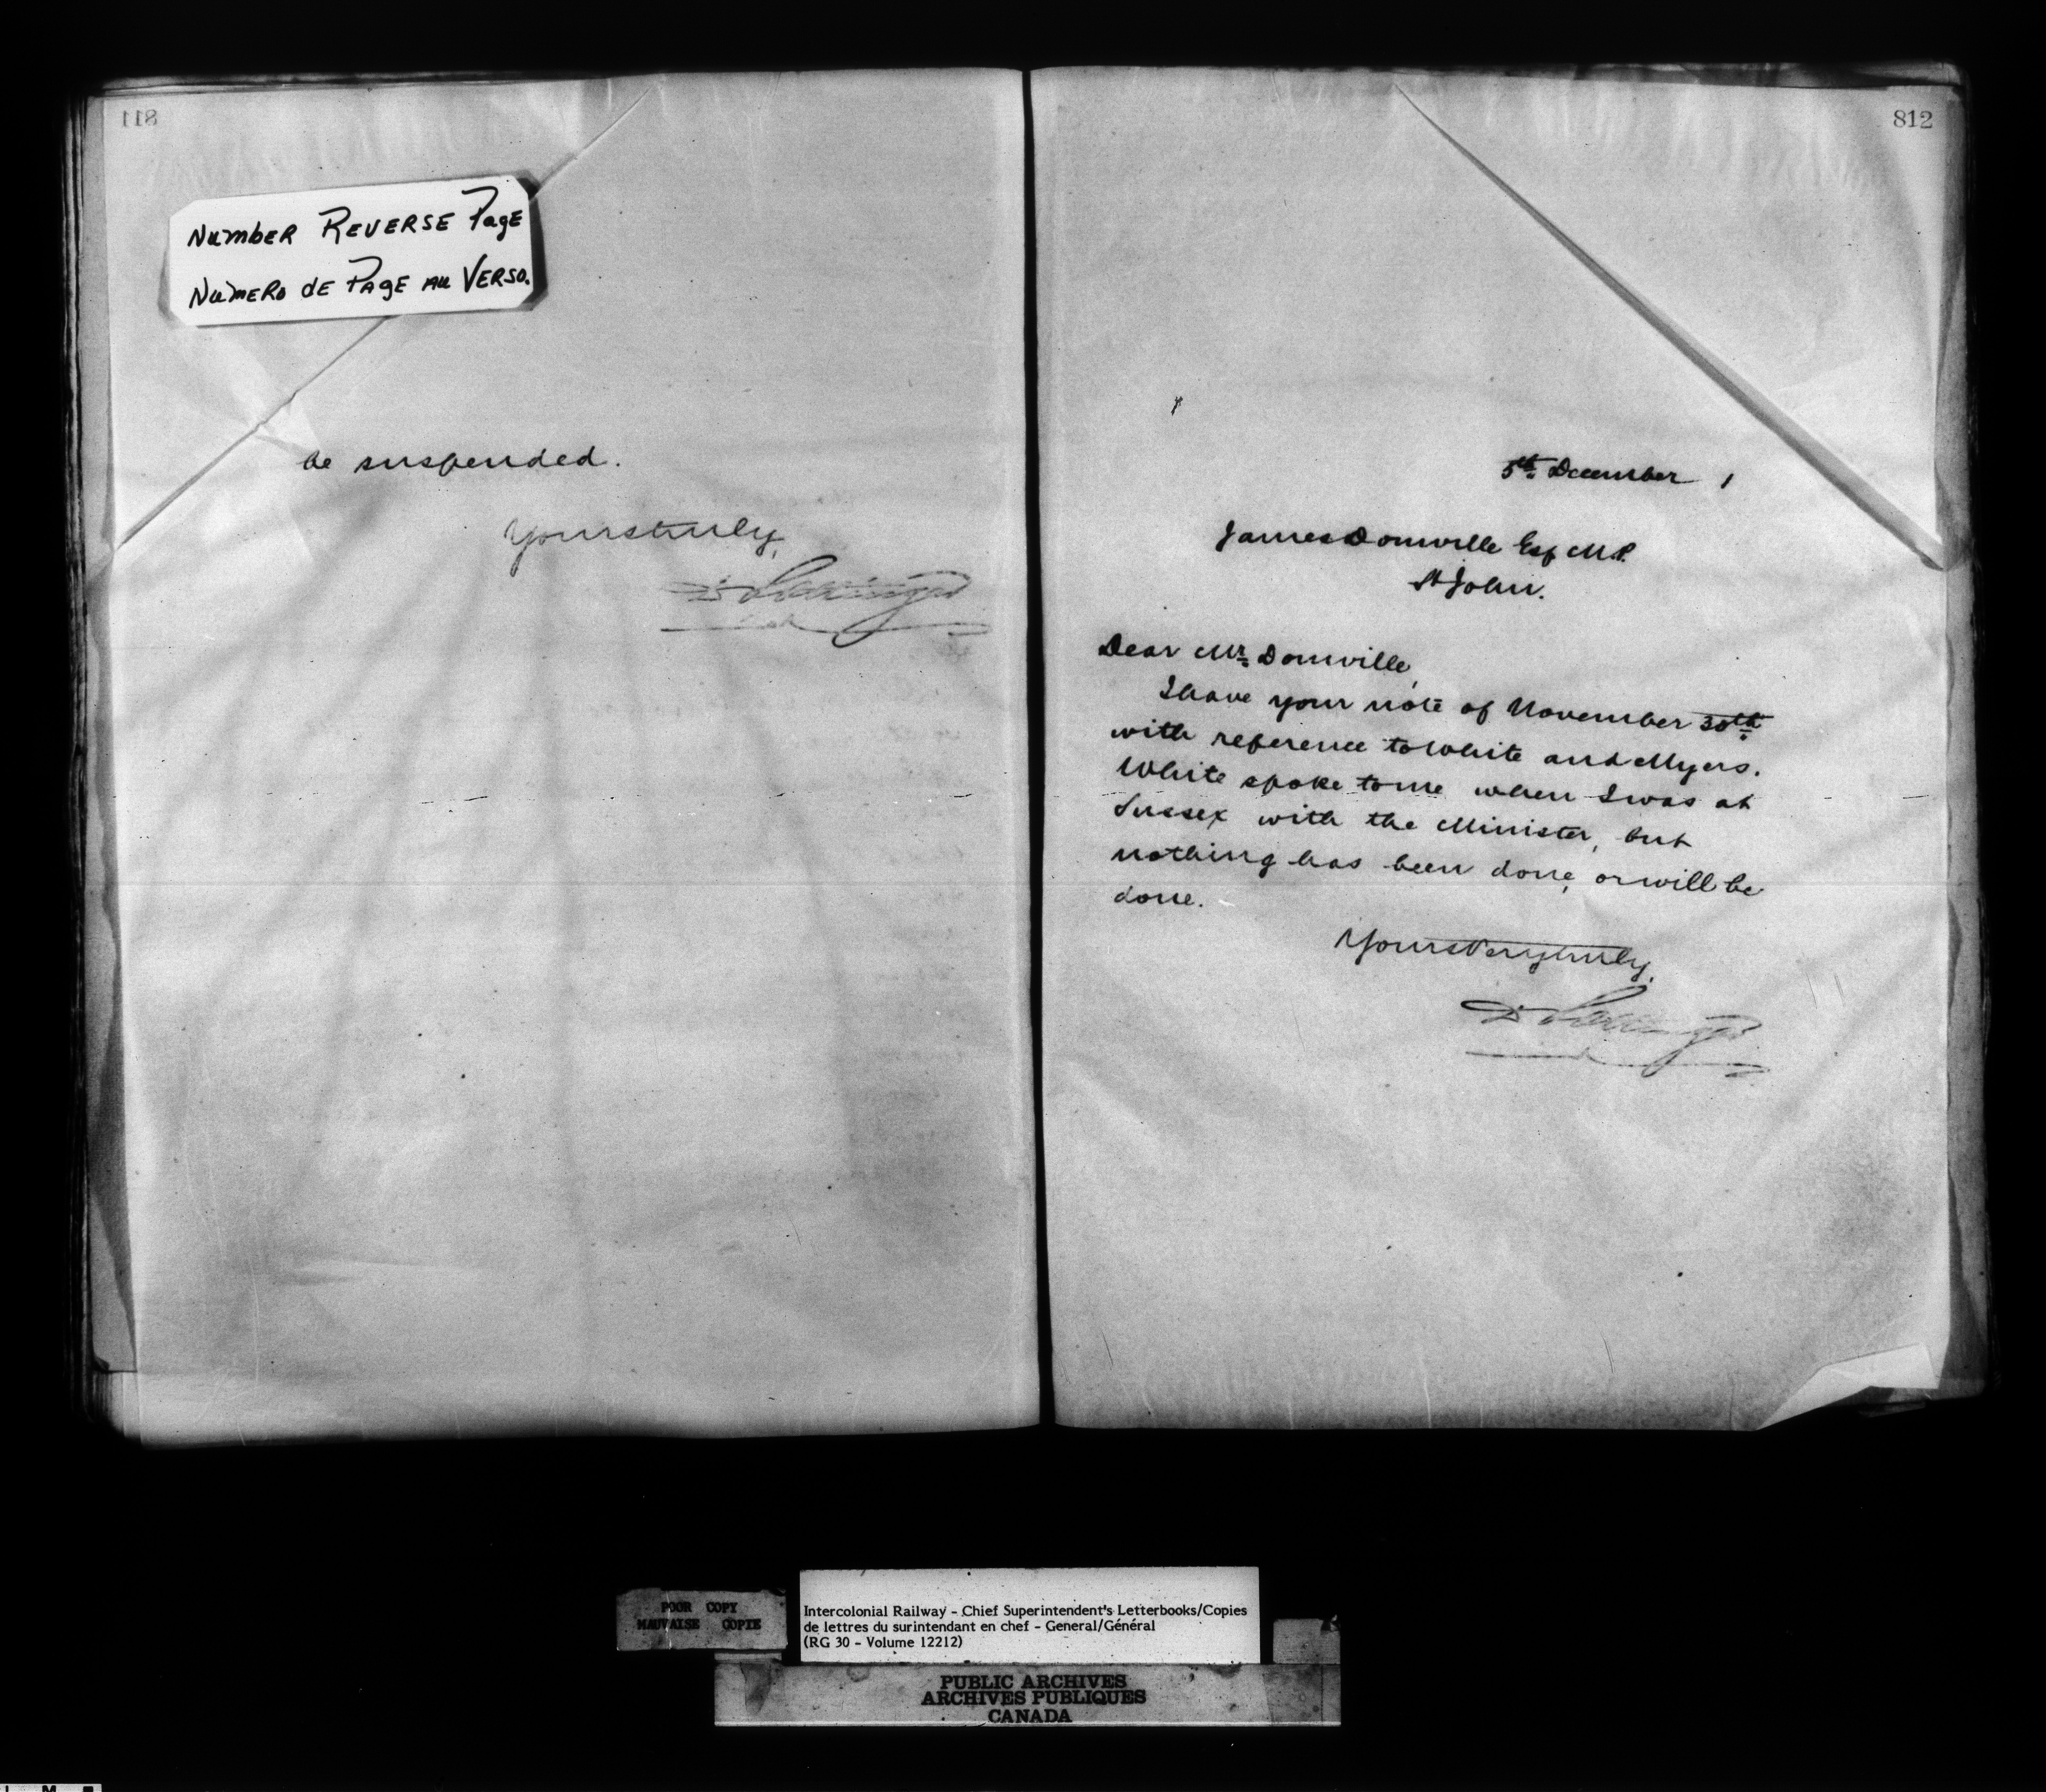 811
Number Reverse Page
Numero de Page au Verso.
be suspended.
Yours truly,
D. Pottinger
812
5th December 1
James Domville Esq M.P.
St John.
Dear Mr. Domville,
I have your note of November 30th
with reference to White and Myers.
White spoke to me when I was at
Sussex with the Minister, but
nothing has been done, or will be
done.
Yours very truly,
D. Pottinger
POOR COPY
MAUVAISE COPIE
Intercolonial Railway - Chief Superintendent's Letterbooks/Copies
de lettres du surintendant en chef - General/Général
(RG 30 - Volume 12212)
PUBLIC ARCHIVES
ARCHIVES PUBLIQUES
CANADA